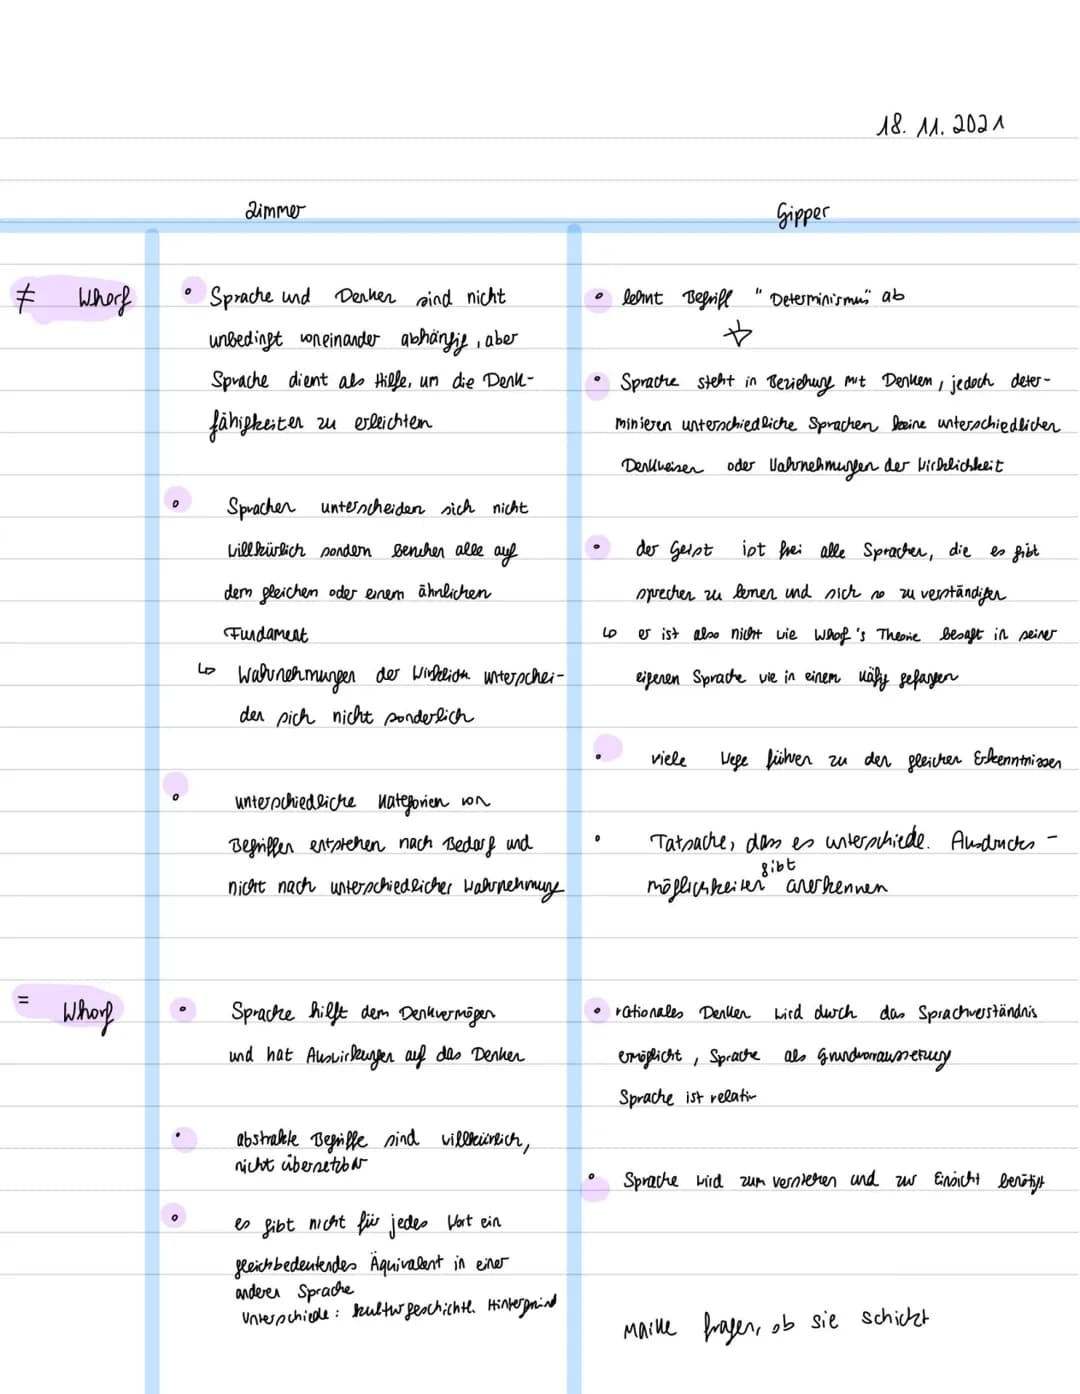 18. 11. 2021
Zimmer
Gipper
≠ Whorf
• Sprache und Denken sind nicht
unbedingt voneinander abhängig, aber
Sprache dient als Hilfe, um die Denk-
fähigkeiten zu erleichtern
• Sprachen unterscheiden sich nicht
willkürlich sondern beruhen alle auf
dem gleichen oder einem ähnlichen
Fundament
↳ Wahrnehmungen der Wirklichk unterschei-
den sich nicht sonderlich
• unterschiedliche Kategorien von
Begriffen entstehen nach Bedarf und
nicht nach unterschiedlicher Wahrnehmung
• lehnt Begriff "Determinismus" ab
• Sprache steht in Beziehung mit Denken, jedoch deter-
minieren unterschiedliche Sprachen keine unterschiedlichen
Denkweisen oder Wahrnehmungen der Wirklichkeit
• der Geist ist frei alle Sprachen, die es gibt
sprechen zu lernen und sich so zu verständigen
↳ er ist also nicht wie Whorf's Theorie besagt in seiner
eigenen Sprache wie in einem Käfig gefangen
• viele Wege führen zu den gleichen Erkenntnissen
• Tatsache, dass es unterschiedl. Ausdrucks-
gibt
möglichkeiten anerkennen
= Whorf
• Sprache hilft dem Denkvermögen
und hat Auswirkungen auf das Denken
• abstrakte Begriffe sind willkürlich,
nicht übersetzbar
• es gibt nicht für jedes Wort ein
gleichbedeutendes Äquivalent in einer
anderen Sprache
Unterschiede: kulturgeschichtl. Hintergrund
• rationales Denken wird durch das Sprachverständnis
ermöglicht, Sprache als Grundvoraussetzung
Sprache ist relativ
• Sprache wird zum verstehen und zur Einsicht benötigt
Maike fragen, ob sie schickt